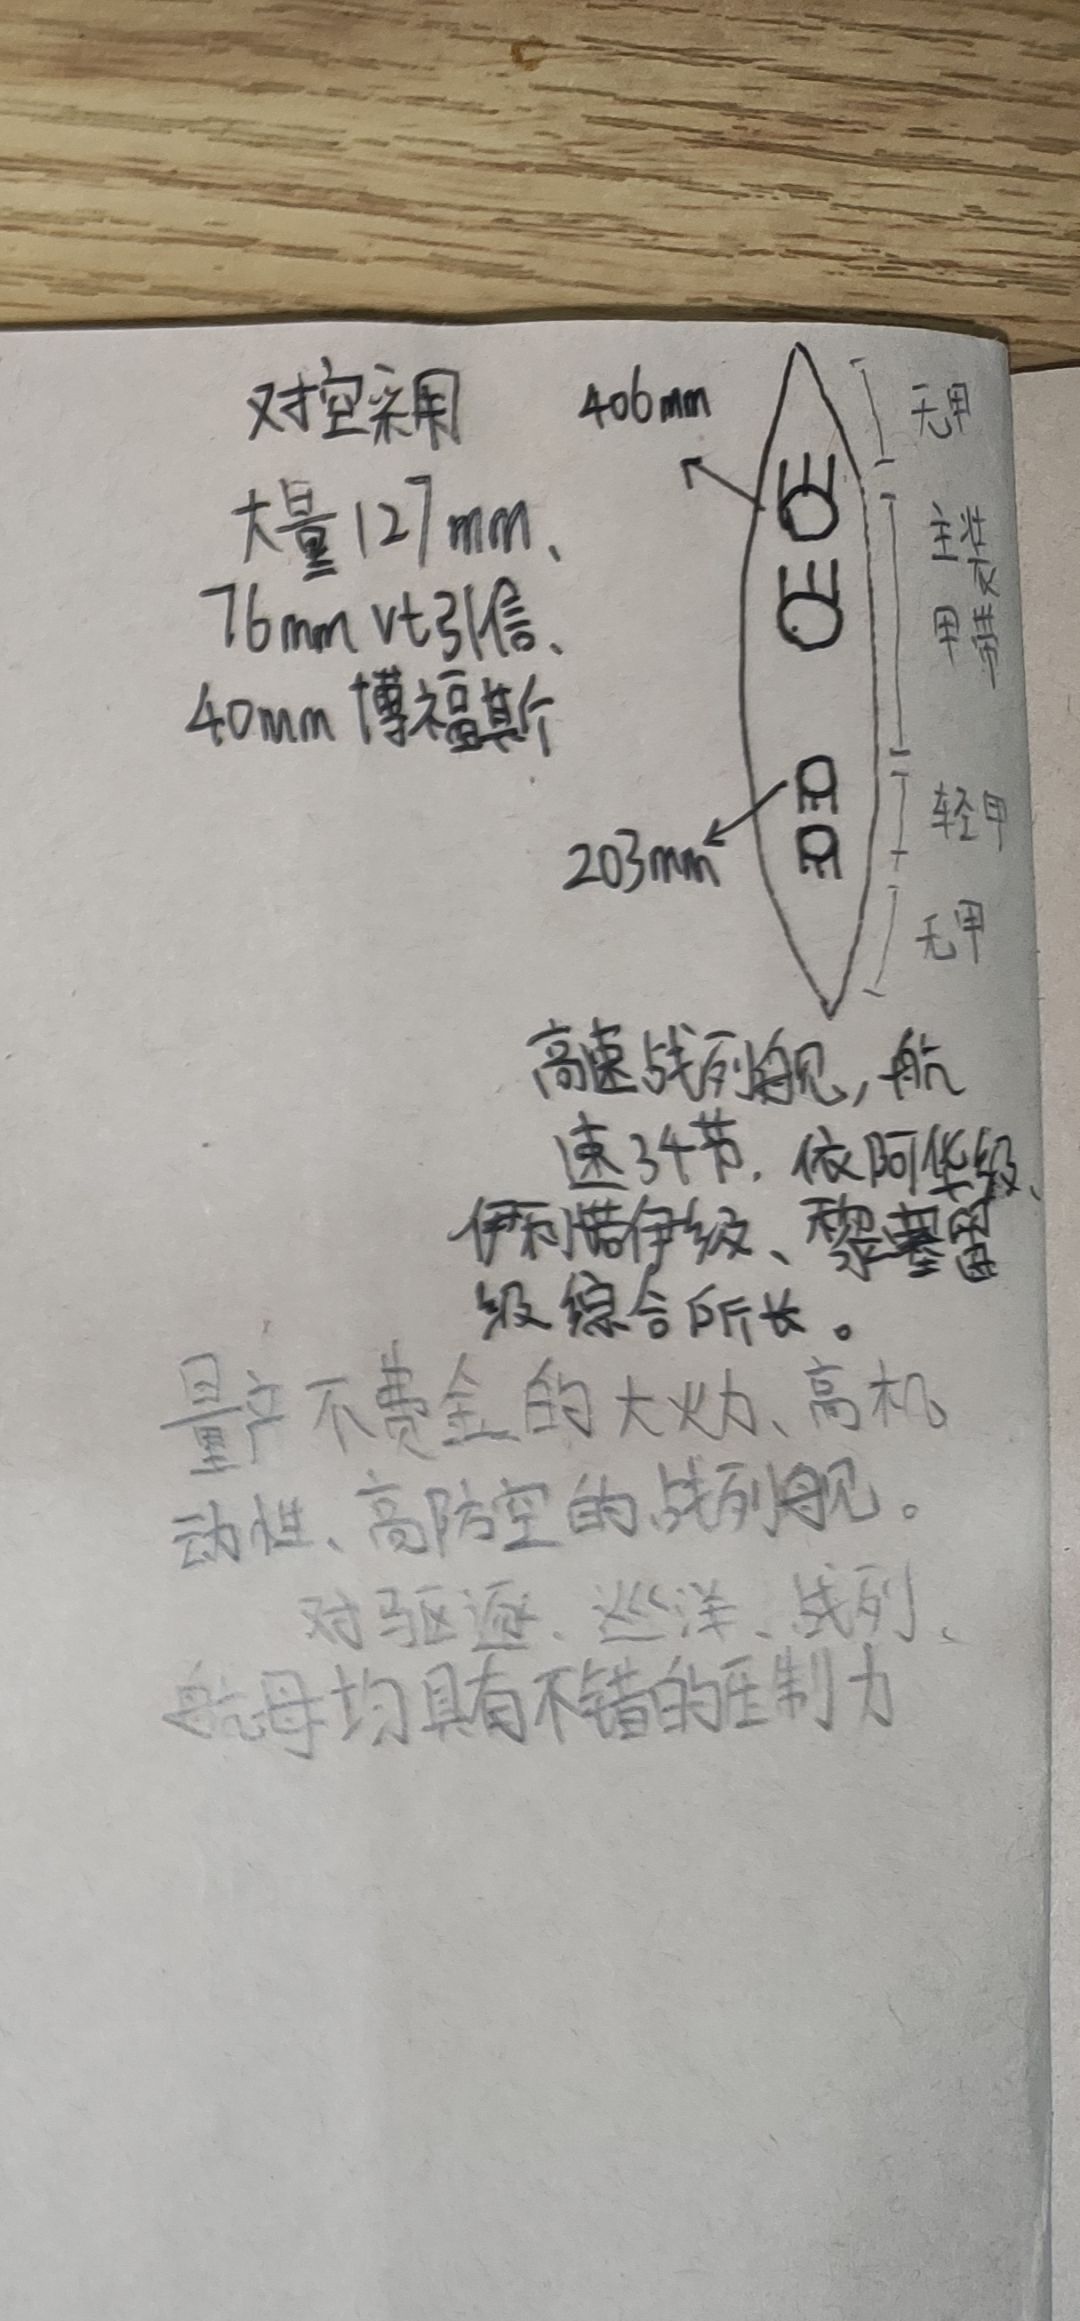 对空采用
大量127mm、
76mm vt引信、
40mm博福斯
406mm
无甲
主装
甲带
轻甲
203mm
无甲
高速战列舰，航
速34节. 依阿华级、
伊利诺伊级、黎塞留
级综合所长。
量产不费金的大火力、高机
动性、高防空的战列舰。
对驱逐、巡洋、战列、
航母均具有不错的压制力